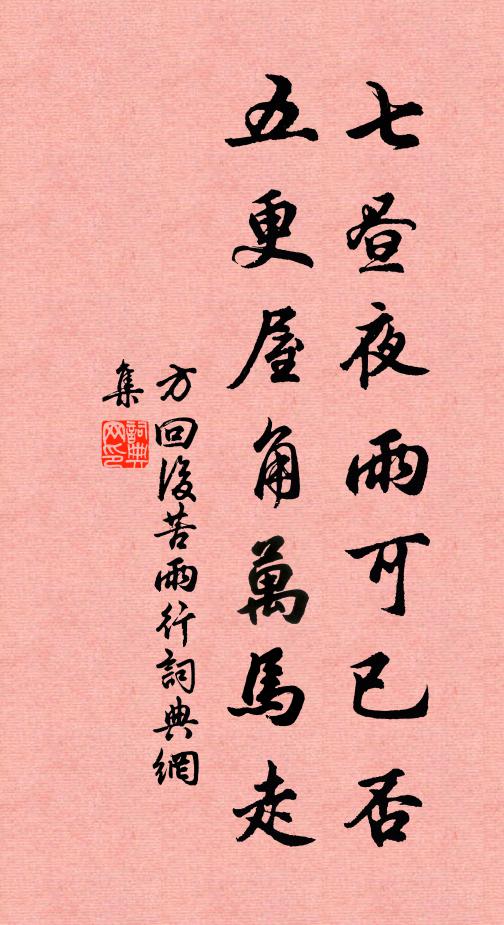 七昼夜雨可已否
五更屋角萬馬走
方回後苦雨行詞典網
集
詞典網印